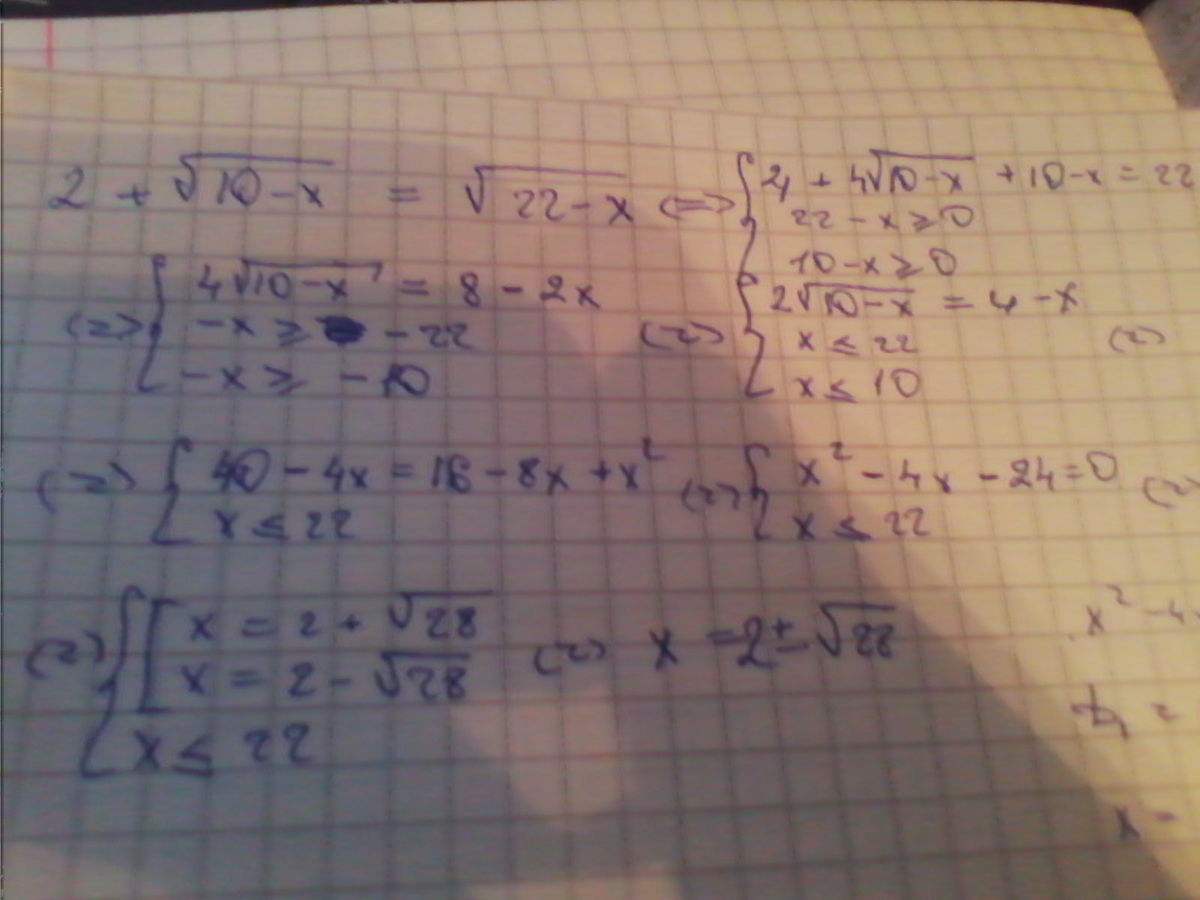 2 + √10-x = √22-x <=> { 4 + 4√10-x + 10-x = 22
22 - x ≥ 0
10-x ≥ 0
<=> { 4√10-x = 8 - 2x
-x ≥ -22
-x ≥ -10
<=> { 2√10-x = 4-x
x ≤ 22
x ≤ 10
<=>
<=> { 40 - 4x = 16 - 8x + x²
x ≤ 22
<=> { x² - 4x - 24=0
x ≤ 22
<=>
<=> { [ x = 2 + √28
x = 2 - √28
x ≤ 22
<=> x = 2 ± √28
x² - 4
x =